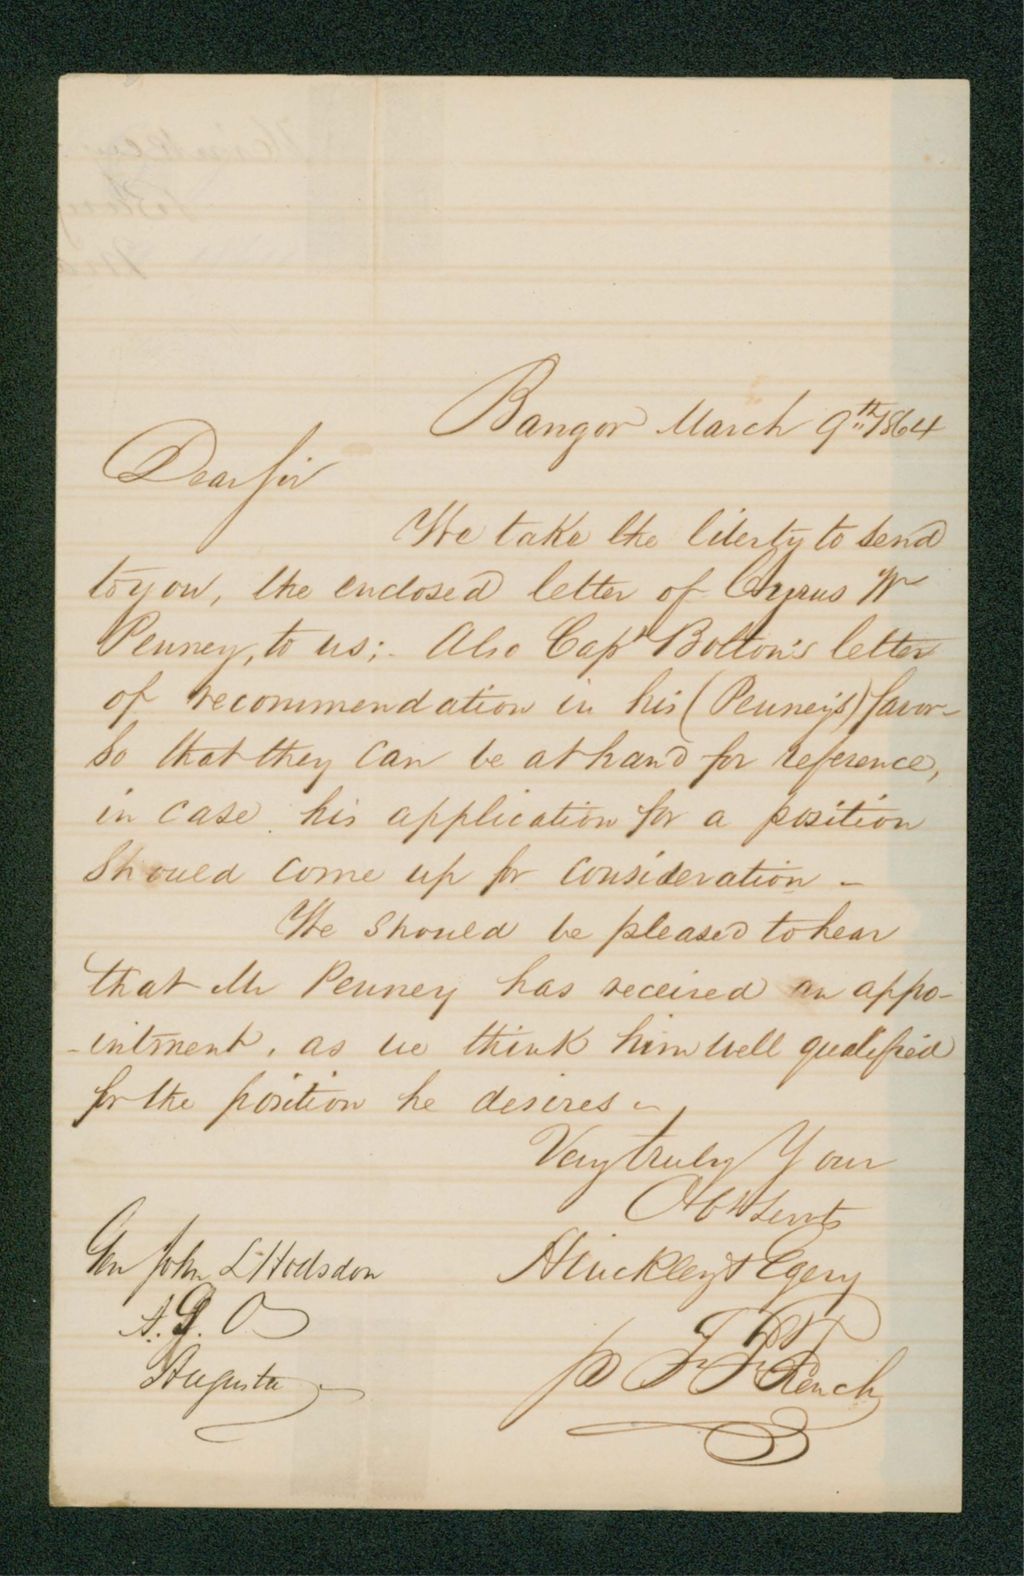 Bangor March 9th 1864
Dear Sir
We take the liberty to send
to you, the enclosed letter of Cyrus W
Penney, to us;- Also Capt Bolton's letter
of recommendation in his (Penney's) favor-
So that they can be at hand for reference,
in case his application for a position
should come up for consideration -
We should be pleased to hear
that Mr Penney has received an appo-
-intment, as we think him well qualified
for the position he desires -
Very truly Your
Obt Servts
Hinckley & Egery
p F. F. French
Gen John L Hodsdon
A. G. O
Augusta